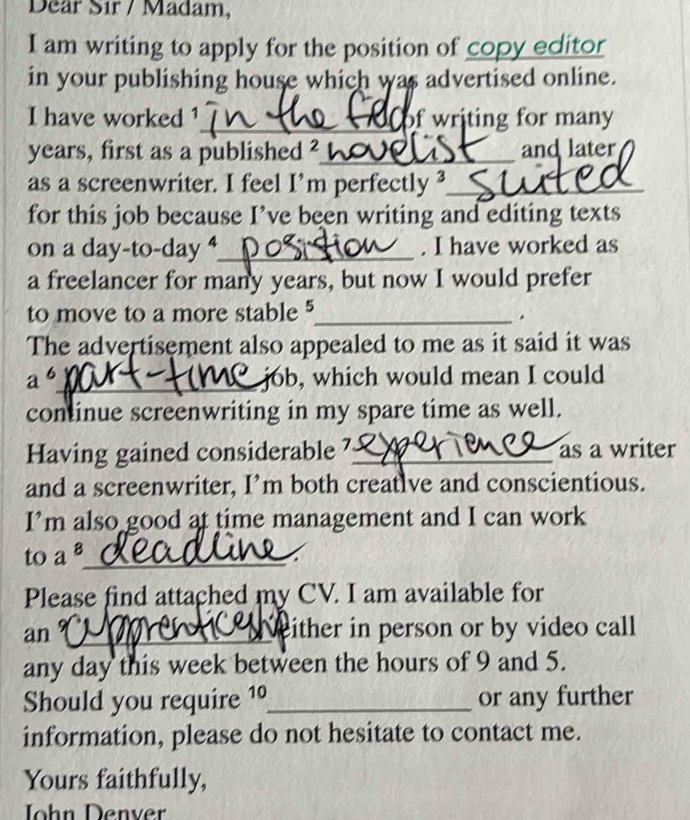 Dear Sir / Madam,
I am writing to apply for the position of copy editor
in your publishing house which was advertised online.
I have worked ¹ in the field of writing for many
years, first as a published ² novelist and later
as a screenwriter. I feel I'm perfectly ³ suited
for this job because I've been writing and editing texts
on a day-to-day ⁴ position. I have worked as
a freelancer for many years, but now I would prefer
to move to a more stable ⁵____________.
The advertisement also appealed to me as it said it was
a ⁶ part-time job, which would mean I could
continue screenwriting in my spare time as well.
Having gained considerable ⁷ experience as a writer
and a screenwriter, I'm both creative and conscientious.
I'm also good at time management and I can work
to a ⁸ deadline.
Please find attached my CV. I am available for
an ⁹ apprenticeship either in person or by video call
any day this week between the hours of 9 and 5.
Should you require ¹⁰____________ or any further
information, please do not hesitate to contact me.
Yours faithfully,
John Denver